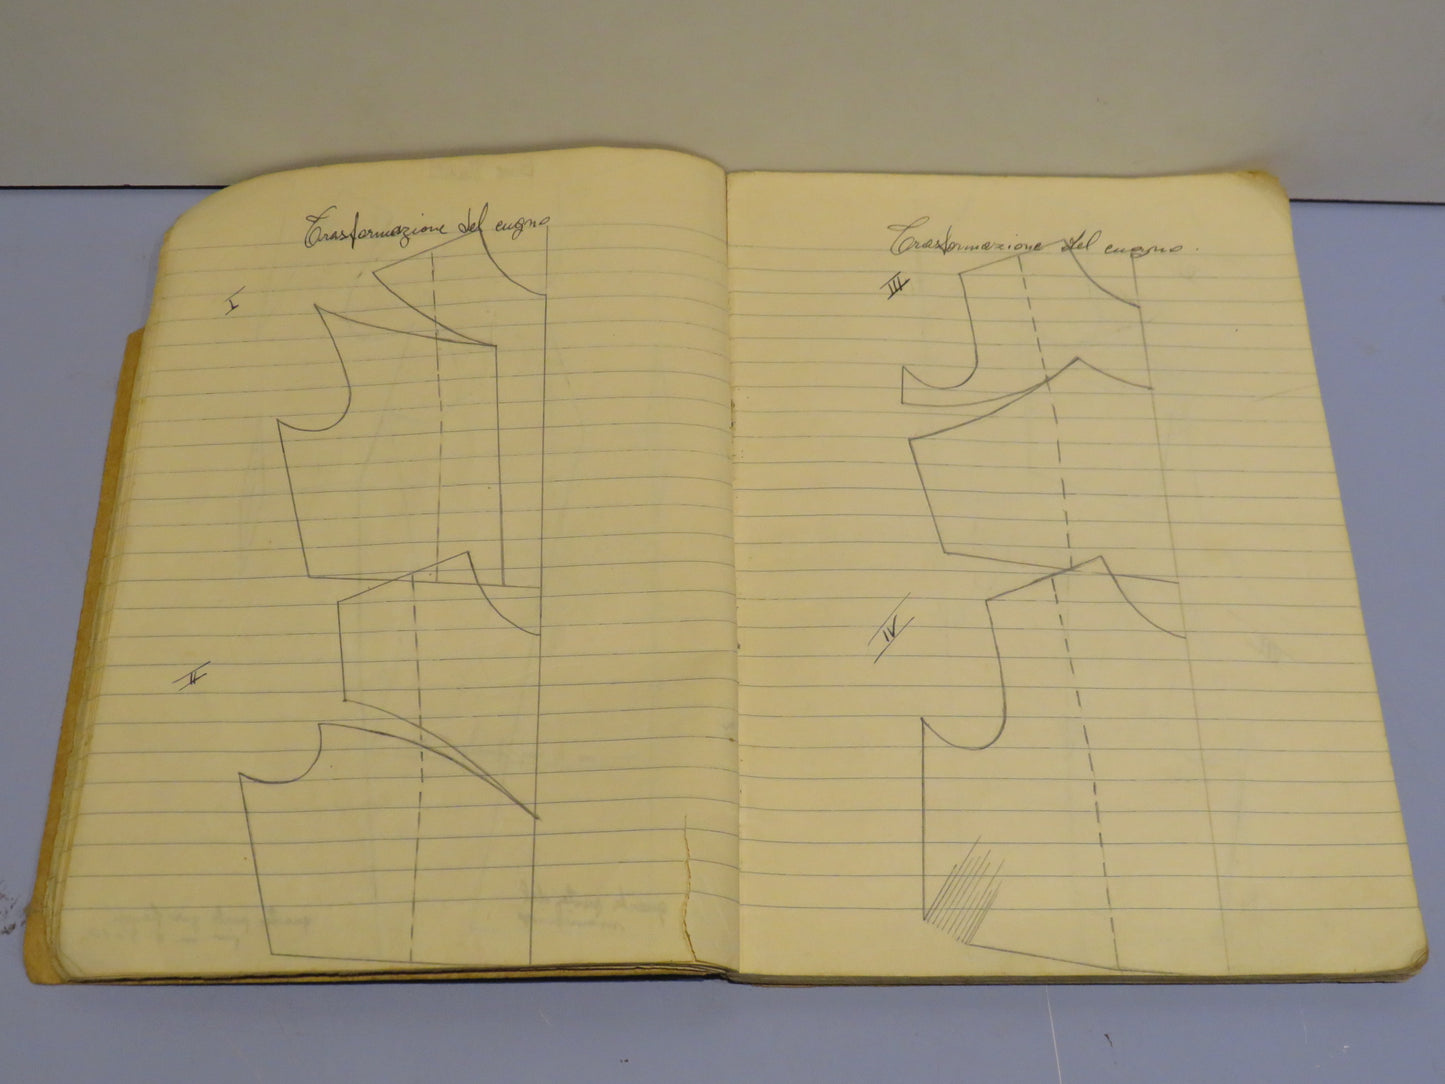 Trasformazione del cugno
I
II
Trasformazione del cugno.
III
IV